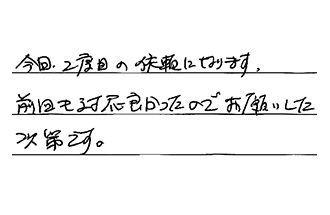 今回、2度目の依頼になります。
前回も対応良かったのでお願いした
次第です。